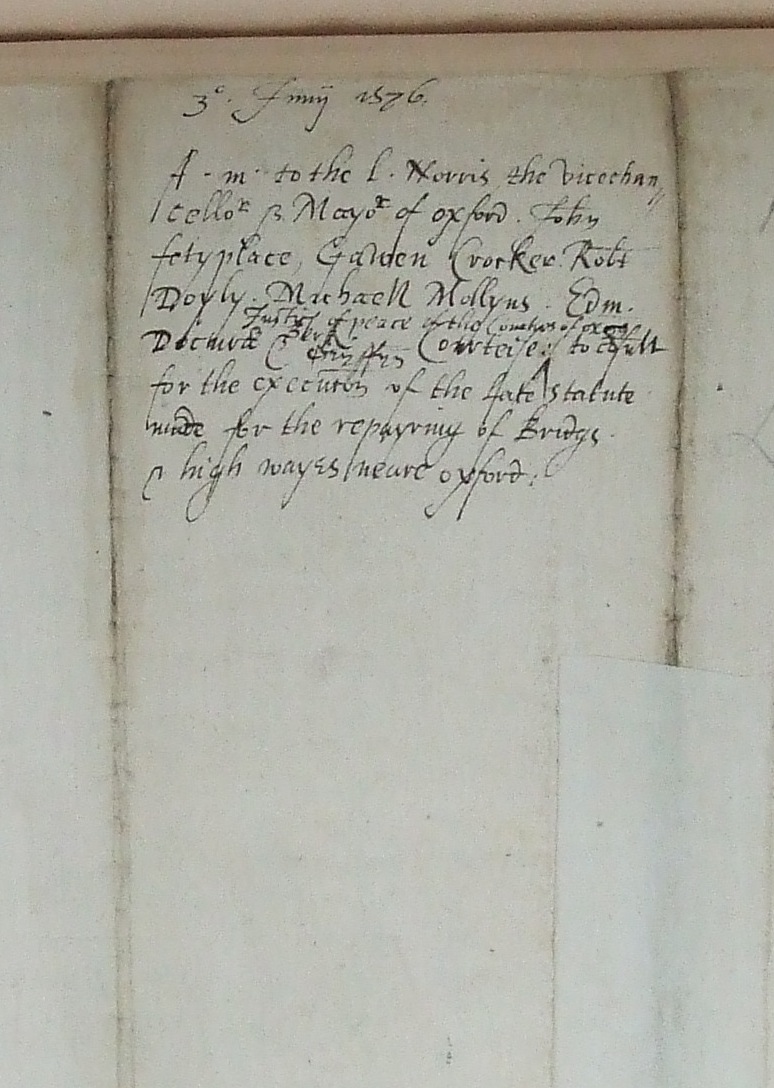 3o. Junij 1576.
A . m. to the l. Norris the vicechan„
cellor & Mayor of oxford. John
fetyplace, Gawen Crocker. Robt
Doyly. Michaell Mollyns. Edm.
Justics of peace of the Counties of oxon
Docwra Berk. Gryffyn Courteise: to
for the execution of the late statute
made for the repayring of Bridgs.
& high wayes neare oxford.